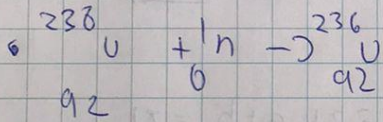 • ²³⁸₉₂U + ¹₀n -> ²³⁶₉₂U